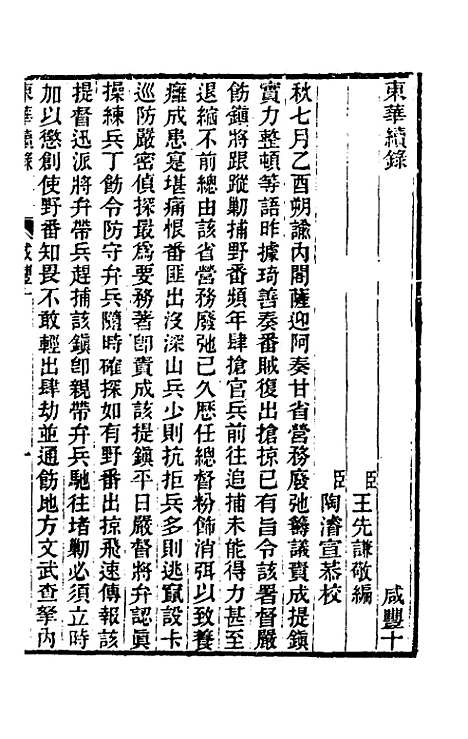 東華續錄 咸豐十
臣王先謙敬編
臣陶濬宣恭校
秋七月乙酉朔諭內閣薩迎阿奏甘省營務廢弛籌議責成提鎮
實力整頓等語昨據琦善奏番賊復出搶掠已有旨令該署督嚴
飭鎮將跟蹤勦捕野番頻年肆搶官兵前往追捕未能得力甚至
退縮不前總由該省營務廢弛已久歷任總督粉飾消弭以致養
癰成患寔堪痛恨番匪出沒深山兵少則抗拒兵多則逃竄設卡
巡防嚴密偵探最爲要務著卽責成該提鎮平日嚴督將弁認眞
操練兵丁飭令防守弁兵隨時確探如有野番出掠飛速傳報該
提督迅派將弁帶兵趕捕該鎮卽親帶弁兵馳往堵勦必須立時
加以懲創使野番知畏不敢輕出肆劫並通飭地方文武查拏內
東華續錄 咸豐十 一